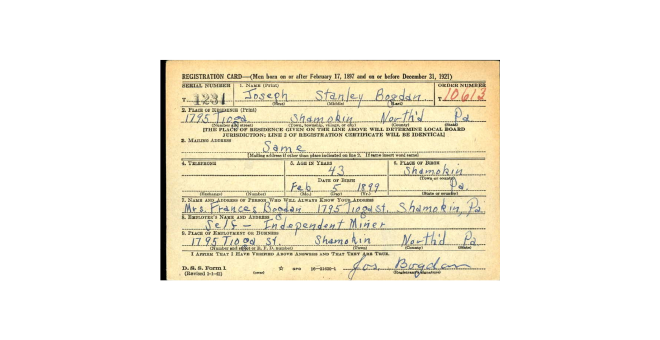 REGISTRATION CARD—(Men born on or after February 17, 1897 and on or before December 31, 1921)
SERIAL NUMBER 1. NAME (Print) ORDER NUMBER
T 1231 Joseph Stanley Bogdan T 10613
(First) (Middle) (Last)
2. PLACE OF RESIDENCE (Print)
1795 Tioga Shamokin North'd Pa.
(Number and street) (Town, township, village, or city) (County) (State)
[THE PLACE OF RESIDENCE GIVEN ON THE LINE ABOVE WILL DETERMINE LOCAL BOARD
JURISDICTION; LINE 2 OF REGISTRATION CERTIFICATE WILL BE IDENTICAL]
3. MAILING ADDRESS
Same
[Mailing address if other than place indicated on line 2. If same insert word same]
4. TELEPHONE 5. AGE IN YEARS 6. PLACE OF BIRTH
43 Shamokin
DATE OF BIRTH (Town or county)
Feb. 5 1899 Pa.
(Exchange) (Number) (Mo.) (Day) (Yr.) (State or country)
7. NAME AND ADDRESS OF PERSON WHO WILL ALWAYS KNOW YOUR ADDRESS
Mrs. Frances Bogdan 1795 Tioga st. Shamokin, Pa.
8. EMPLOYER'S NAME AND ADDRESS
Self - Independent Miner
9. PLACE OF EMPLOYMENT OR BUSINESS
1795 Tioga St. Shamokin North'd Pa.
(Number and street or R. F. D. number) (Town) (County) (State)
I AFFIRM THAT I HAVE VERIFIED ABOVE ANSWERS AND THAT THEY ARE TRUE.
D. S. S. Form 1
(Revised 1-1-42) (over) Jos. Bogdan
(Registrant's signature)